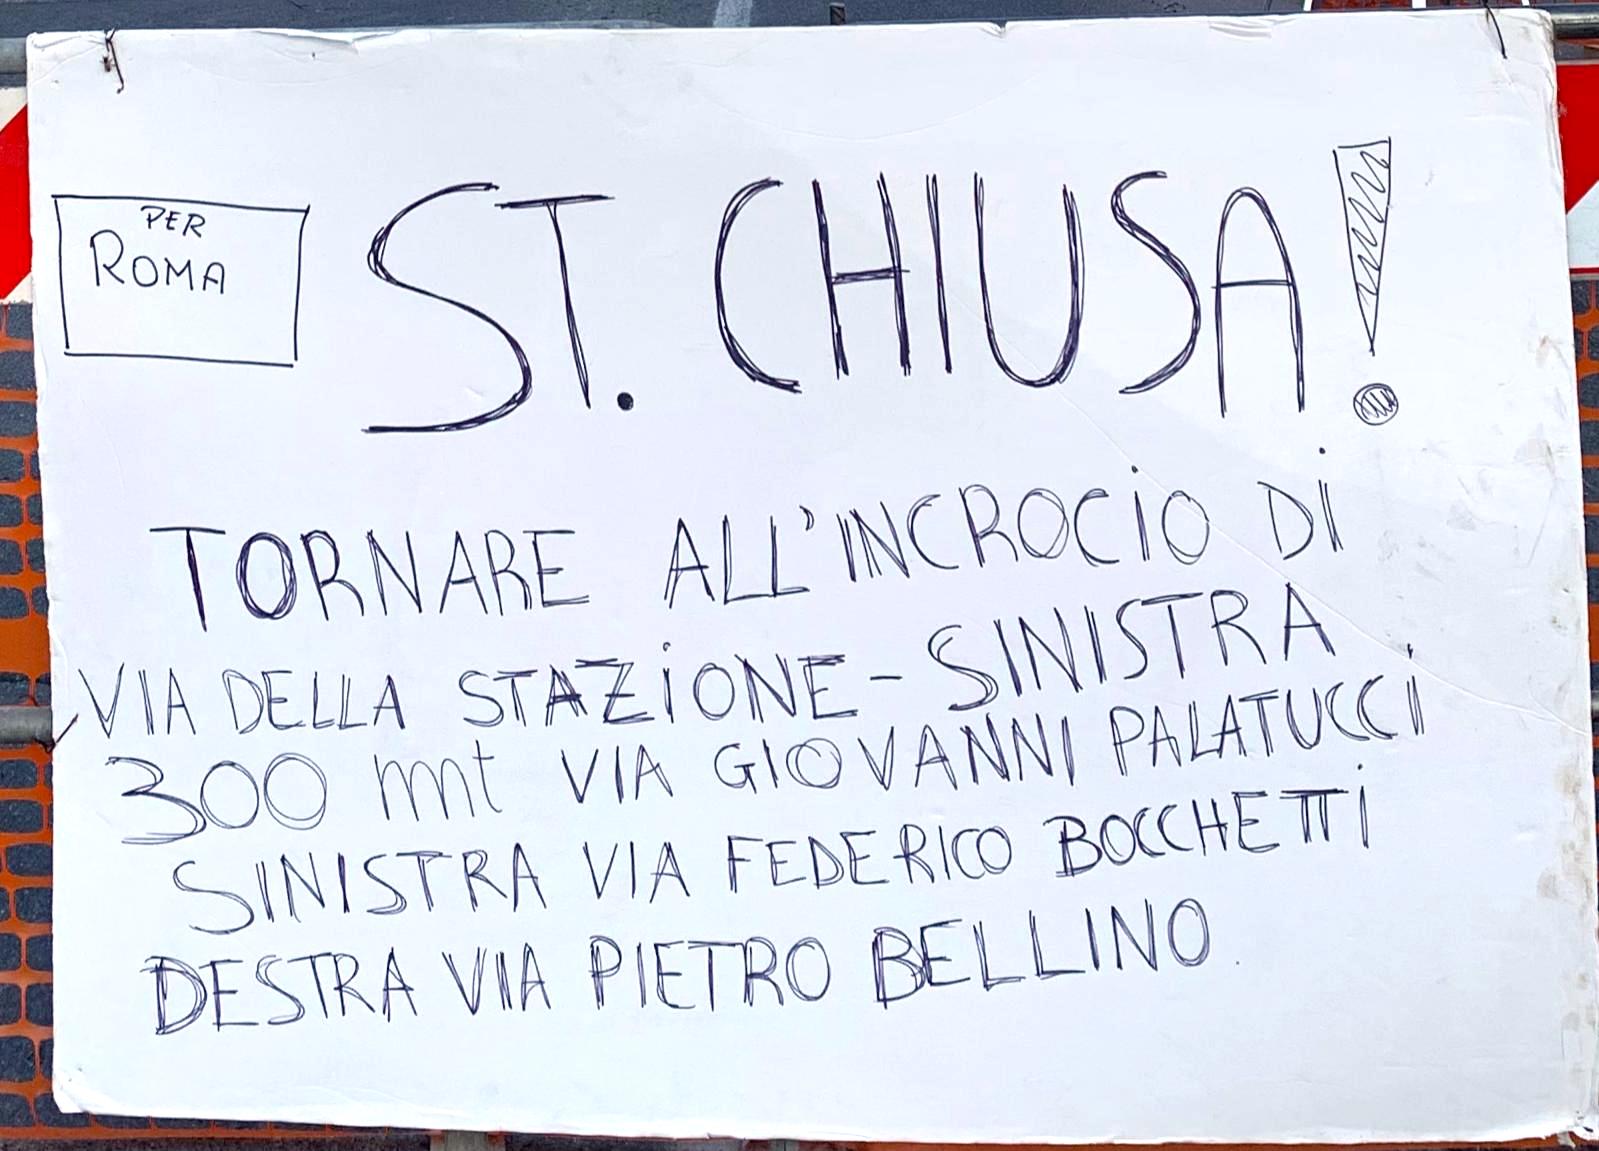 PER
ROMA
ST. CHIUSA!
TORNARE ALL'INCROCIO DI
VIA DELLA STAZIONE - SINISTRA
300 mt VIA GIOVANNI PALATUCCI
SINISTRA VIA FEDERICO BOCCHETTI
DESTRA VIA PIETRO BELLINO